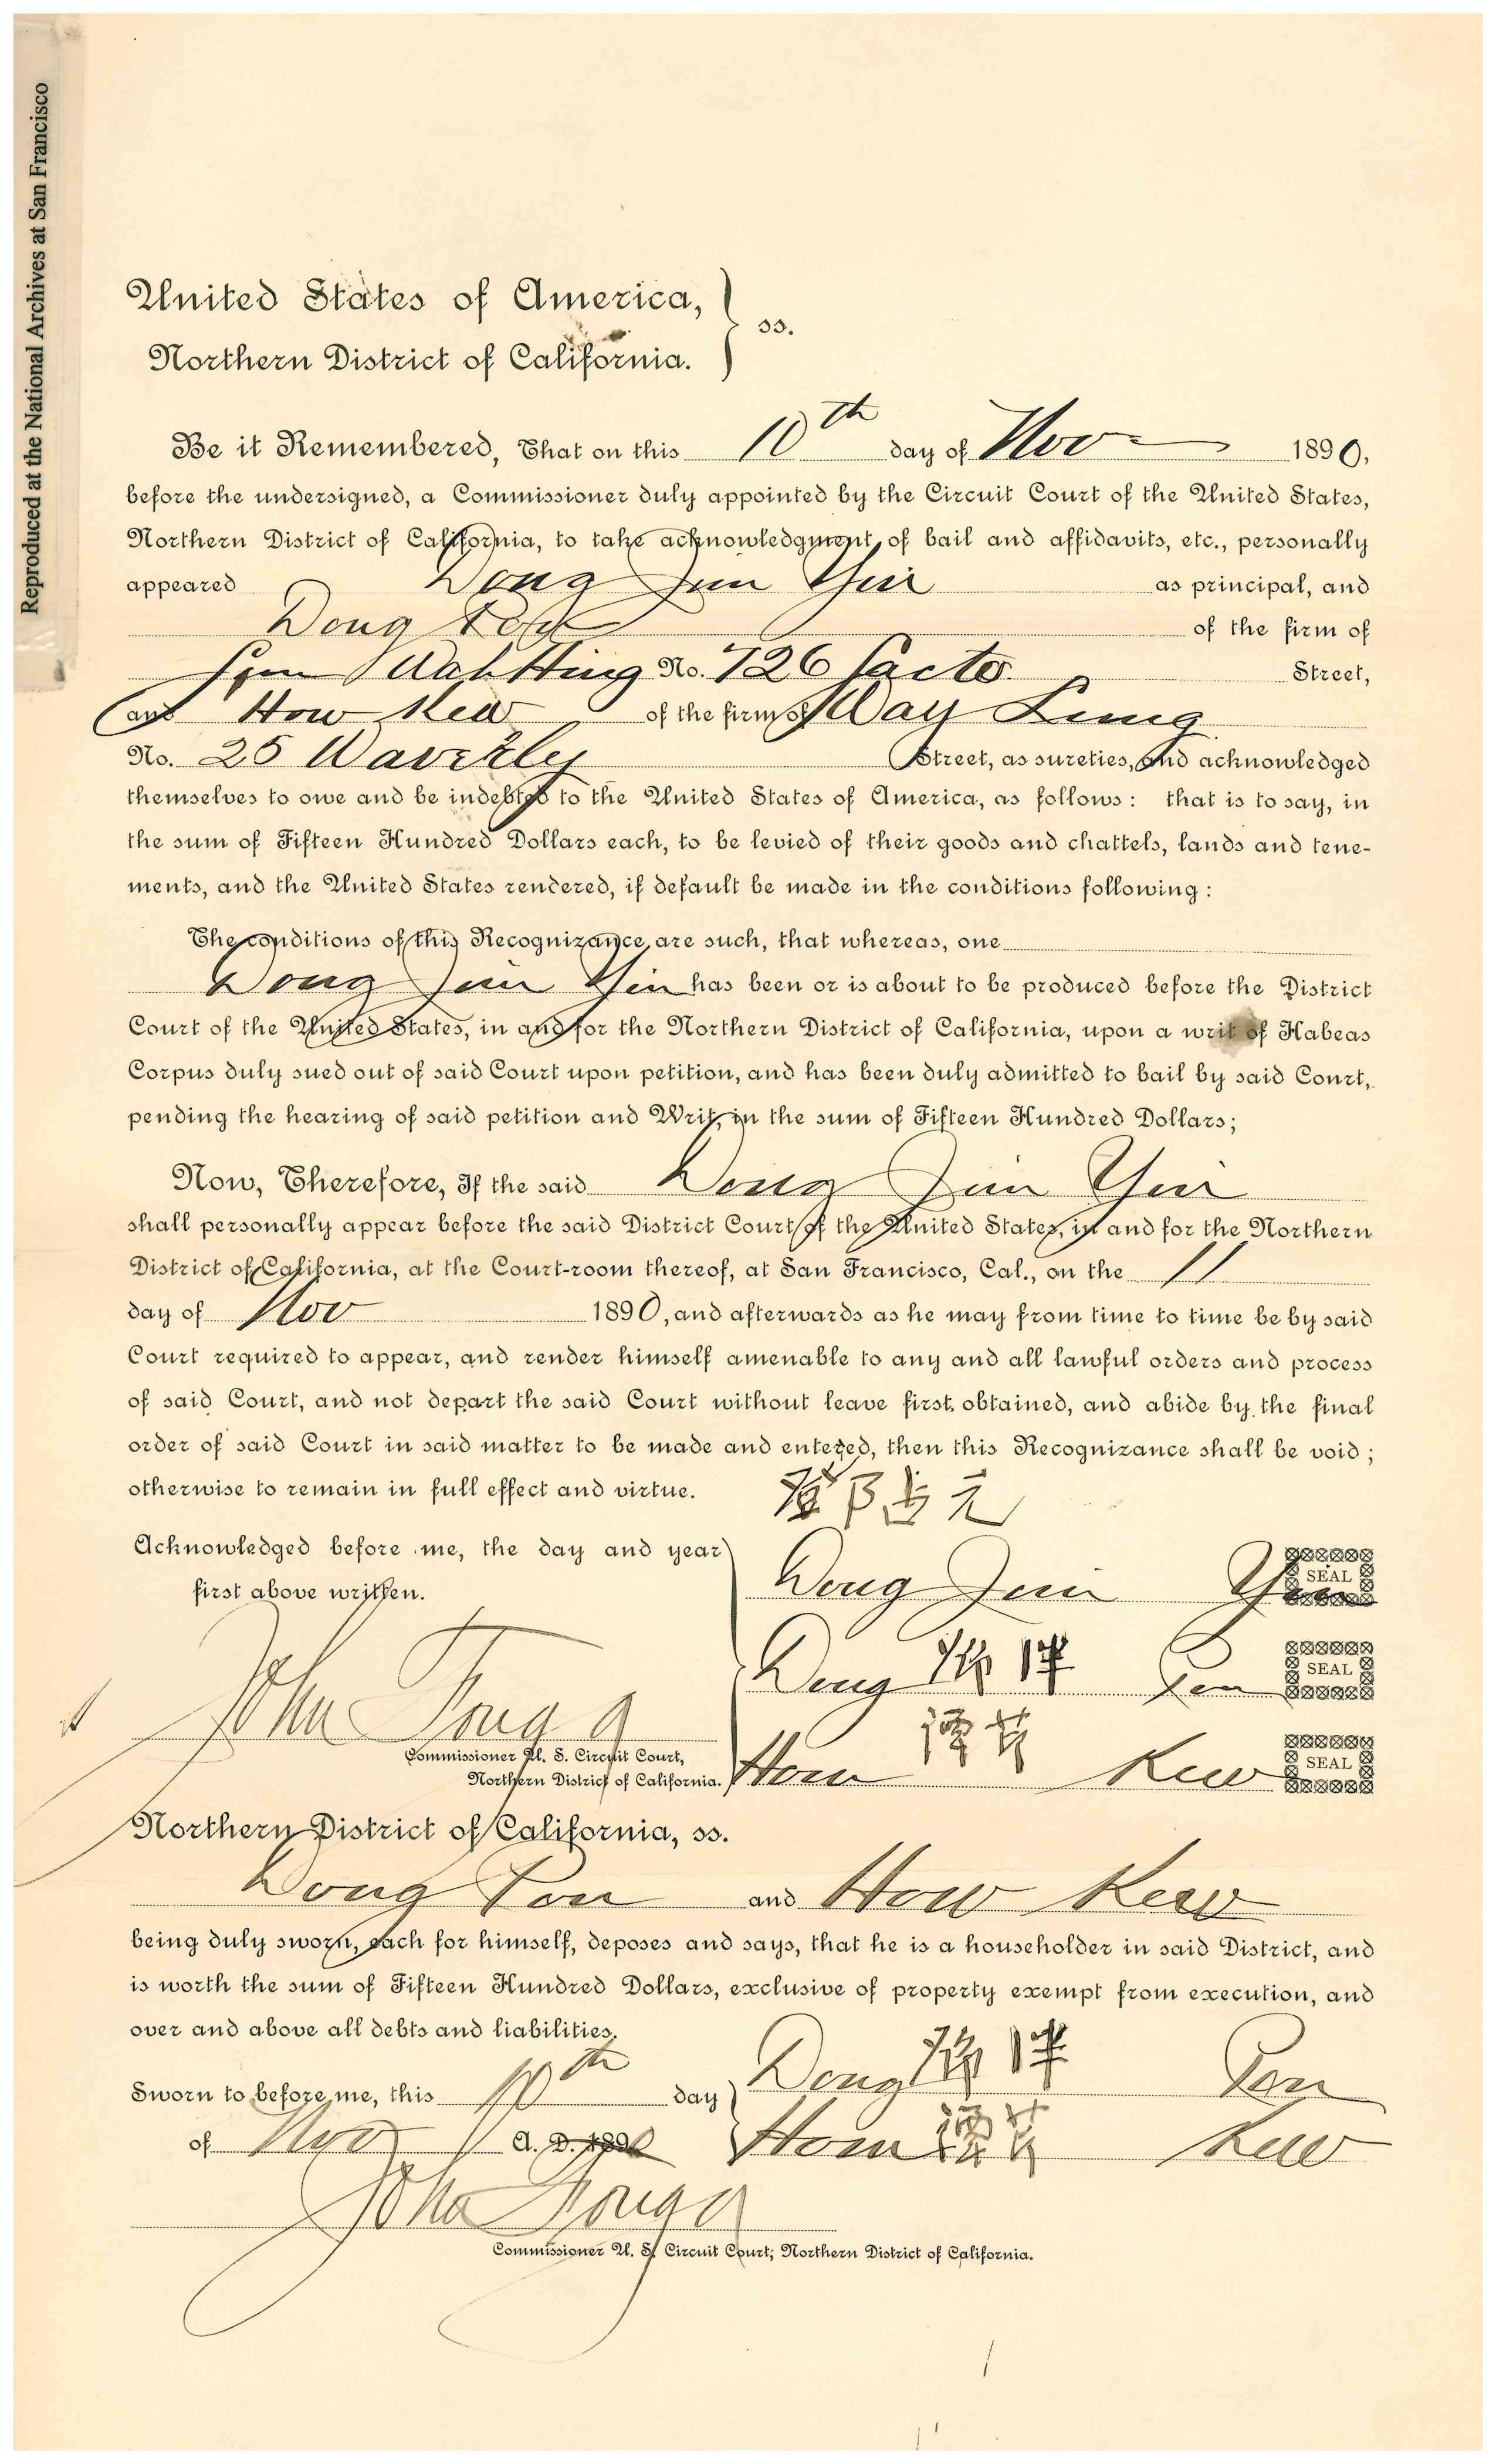 Reproduced at the National Archives at San Francisco
United States of America,
Northern District of California. } ss.
Be it Remembered, That on this 10th day of Nov 1890,
before the undersigned, a Commissioner duly appointed by the Circuit Court of the United States,
Northern District of California, to take acknowledgment of bail and affidavits, etc., personally
appeared Dong Jim Yin as principal, and
Dong of the firm of
Wah Hing No. 726 Sacto Street,
and How Kew of the firm of Way Lung
No. 25 Waverly Street, as sureties, and acknowledged
themselves to owe and be indebted to the United States of America, as follows: that is to say, in
the sum of Fifteen Hundred Dollars each, to be levied of their goods and chattels, lands and tene-
ments, and the United States rendered, if default be made in the conditions following:
The conditions of this Recognizance are such, that whereas, one
Dong Jim Yin has been or is about to be produced before the District
Court of the United States, in and for the Northern District of California, upon a writ of Habeas
Corpus duly sued out of said Court upon petition, and has been duly admitted to bail by said Court,
pending the hearing of said petition and Writ, in the sum of Fifteen Hundred Dollars;
Now, Therefore, If the said Dong Jim Yin
shall personally appear before the said District Court of the United States, in and for the Northern
District of California, at the Court-room thereof, at San Francisco, Cal., on the 11
day of Nov 1890, and afterwards as he may from time to time be by said
Court required to appear, and render himself amenable to any and all lawful orders and process
of said Court, and not depart the said Court without leave first obtained, and abide by the final
order of said Court in said matter to be made and entered, then this Recognizance shall be void;
otherwise to remain in full effect and virtue.
Acknowledged before me, the day and year
first above written.
Dong Jim Yin SEAL
Dong Pon SEAL
John
Commissioner U. S. Circuit Court,
Northern District of California.
How Kew SEAL
Northern District of California, ss.
Dong Pon and How Kew
being duly sworn, each for himself, deposes and says, that he is a householder in said District, and
is worth the sum of Fifteen Hundred Dollars, exclusive of property exempt from execution, and
over and above all debts and liabilities.
Sworn to before me, this 10th day
of Nov A. D. 1890
Dong Pon
How Kew
John
Commissioner U. S. Circuit Court, Northern District of California.